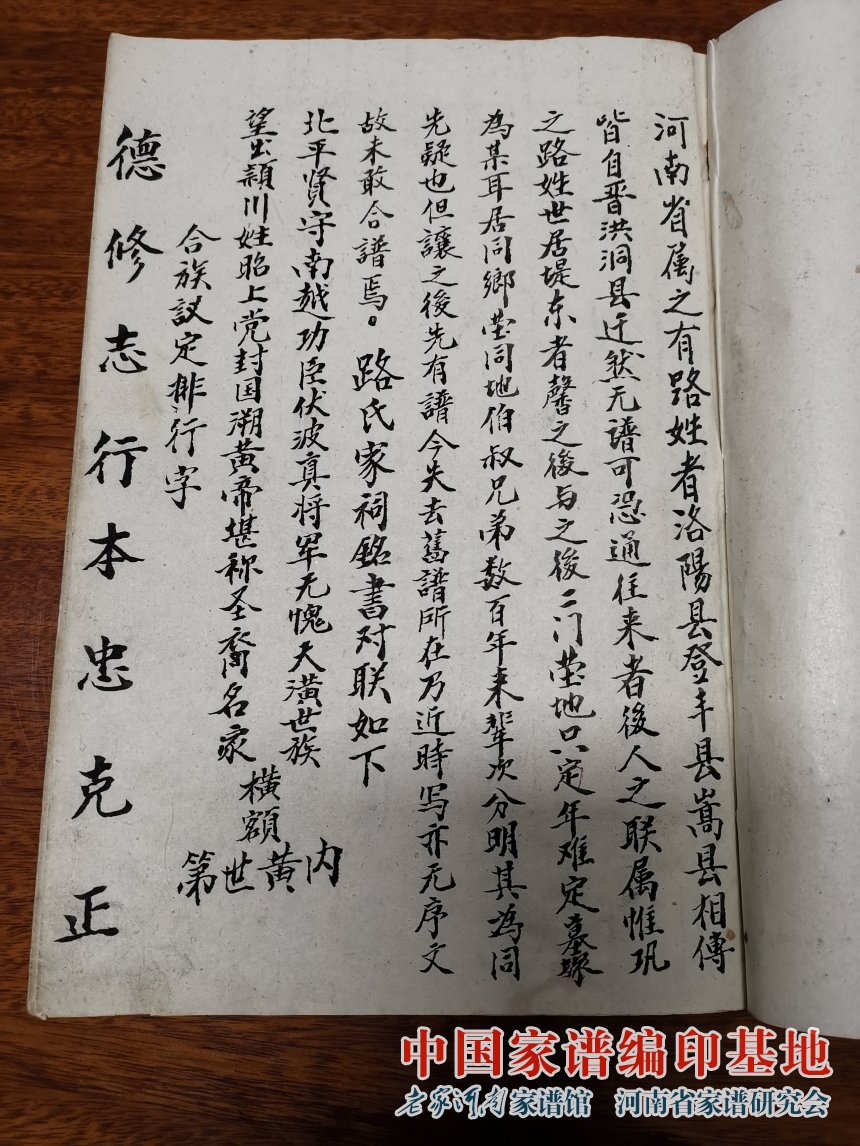 河南省属之有路姓者洛陽县登丰县嵩县相傳
皆自晋洪洞县迁然无谱可恐通往来者後人之联属惟巩
之路姓世居堤东者馨之後与之後二门茔地只定年难定墓塚
為某耳居同鄉茔同地伯叔兄弟数百年来辈次分明其為同
先疑也但讓之後先有譜今失去舊譜所在乃近時写亦无序文
故未敢合譜焉。路氏家祠銘書对联如下
北平贤守南越功臣伏波真将军无愧天潢世族
望出颖川姓昭上党封国溯黄帝堪称圣裔名家
橫額
内黄世第
合族议定排行字
德修志行本忠克正
中国家谱编印基地
老家河南家谱馆 河南省家谱研究会